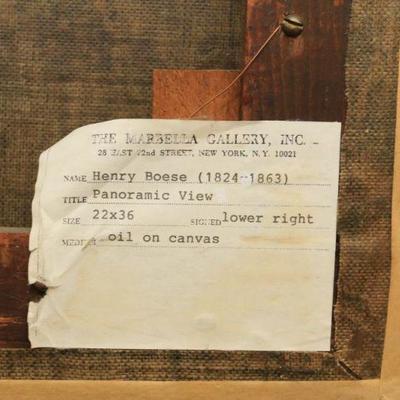 THE MARBELLA GALLERY, INC.
28 EAST 72nd STREET, NEW YORK, N.Y. 10021
NAME Henry Boese (1824-1863)
TITLE Panoramic View
SIZE 22x36 SIGNED lower right
MEDIUM oil on canvas